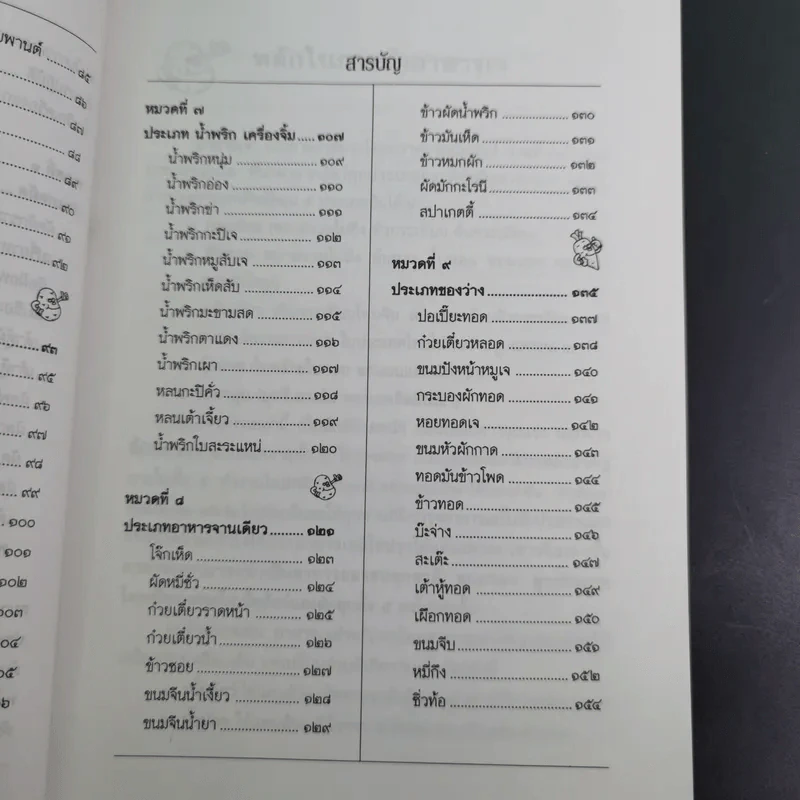 ๘๕
๘๖
๘๗
๘๘
๘๙
๙๐
๙๑
๙๒
๙๓
๙๕
๙๖
๙๗
๙๘
๙๙
๑๐๐
๑๐๑
๑๐๒
๑๐๓
สารบัญ
หมวดที่ ๗
ประเภท น้ำพริก เครื่องจิ้ม.....๑๐๗
น้ำพริกหนุ่ม ........................ ๑๐๙
น้ำพริกอ่อง ........................ ๑๑๐
น้ำพริกข่า ........................ ๑๑๑
น้ำพริกกะปิเจ ........................ ๑๑๒
น้ำพริกหมูสับเจ ........................ ๑๑๓
น้ำพริกเห็ดสับ ........................ ๑๑๔
น้ำพริกมะขามสด ........................ ๑๑๕
น้ำพริกตาแดง ........................ ๑๑๖
น้ำพริกเผา ........................ ๑๑๗
หลนกะปิคั่ว ........................ ๑๑๘
หลนเต้าเจี้ยว ........................ ๑๑๙
น้ำพริกใบสะระแหน่............ ๑๒๐
หมวดที่ ๘
ประเภทอาหารจานเดียว ......... ๑๒๑
โจ๊กเห็ด ........................ ๑๒๓
ผัดหมี่ซั่ว ........................ ๑๒๔
ก๋วยเตี๋ยวราดหน้า ................ ๑๒๕
ก๋วยเตี๋ยวน้ำ ........................ ๑๒๖
ข้าวซอย ........................ ๑๒๗
ขนมจีนน้ำเงี้ยว .................... ๑๒๘
ขนมจีนน้ำยา ........................ ๑๒๙
ข้าวผัดน้ำพริก .................... ๑๓๐
ข้าวมันเห็ด ........................ ๑๓๑
ข้าวหมกผัก ........................ ๑๓๒
ผัดมักกะโรนี ........................ ๑๓๓
สปาเกตตี้ ........................ ๑๓๔
หมวดที่ ๙
ประเภทของว่าง .................... ๑๓๕
ปอเปี๊ยะทอด ........................ ๑๓๗
ก๋วยเตี๋ยวหลอด .................... ๑๓๘
ขนมปังหน้าหมูเจ ................ ๑๔๐
กระบองผักทอด .................... ๑๔๑
หอยทอดเจ ........................ ๑๔๒
ขนมหัวผักกาด .................... ๑๔๓
ทอดมันข้าวโพด .................... ๑๔๔
ข้าวทอด ........................ ๑๔๕
บ๊ะจ่าง ........................ ๑๔๖
สะเต๊ะ ........................ ๑๔๗
เต้าหู้ทอด ........................ ๑๔๙
เผือกทอด ........................ ๑๕๐
ขนมจีบ ........................ ๑๕๑
หมี่กึง ........................ ๑๕๒
ชิ่วท้อ ........................ ๑๕๔